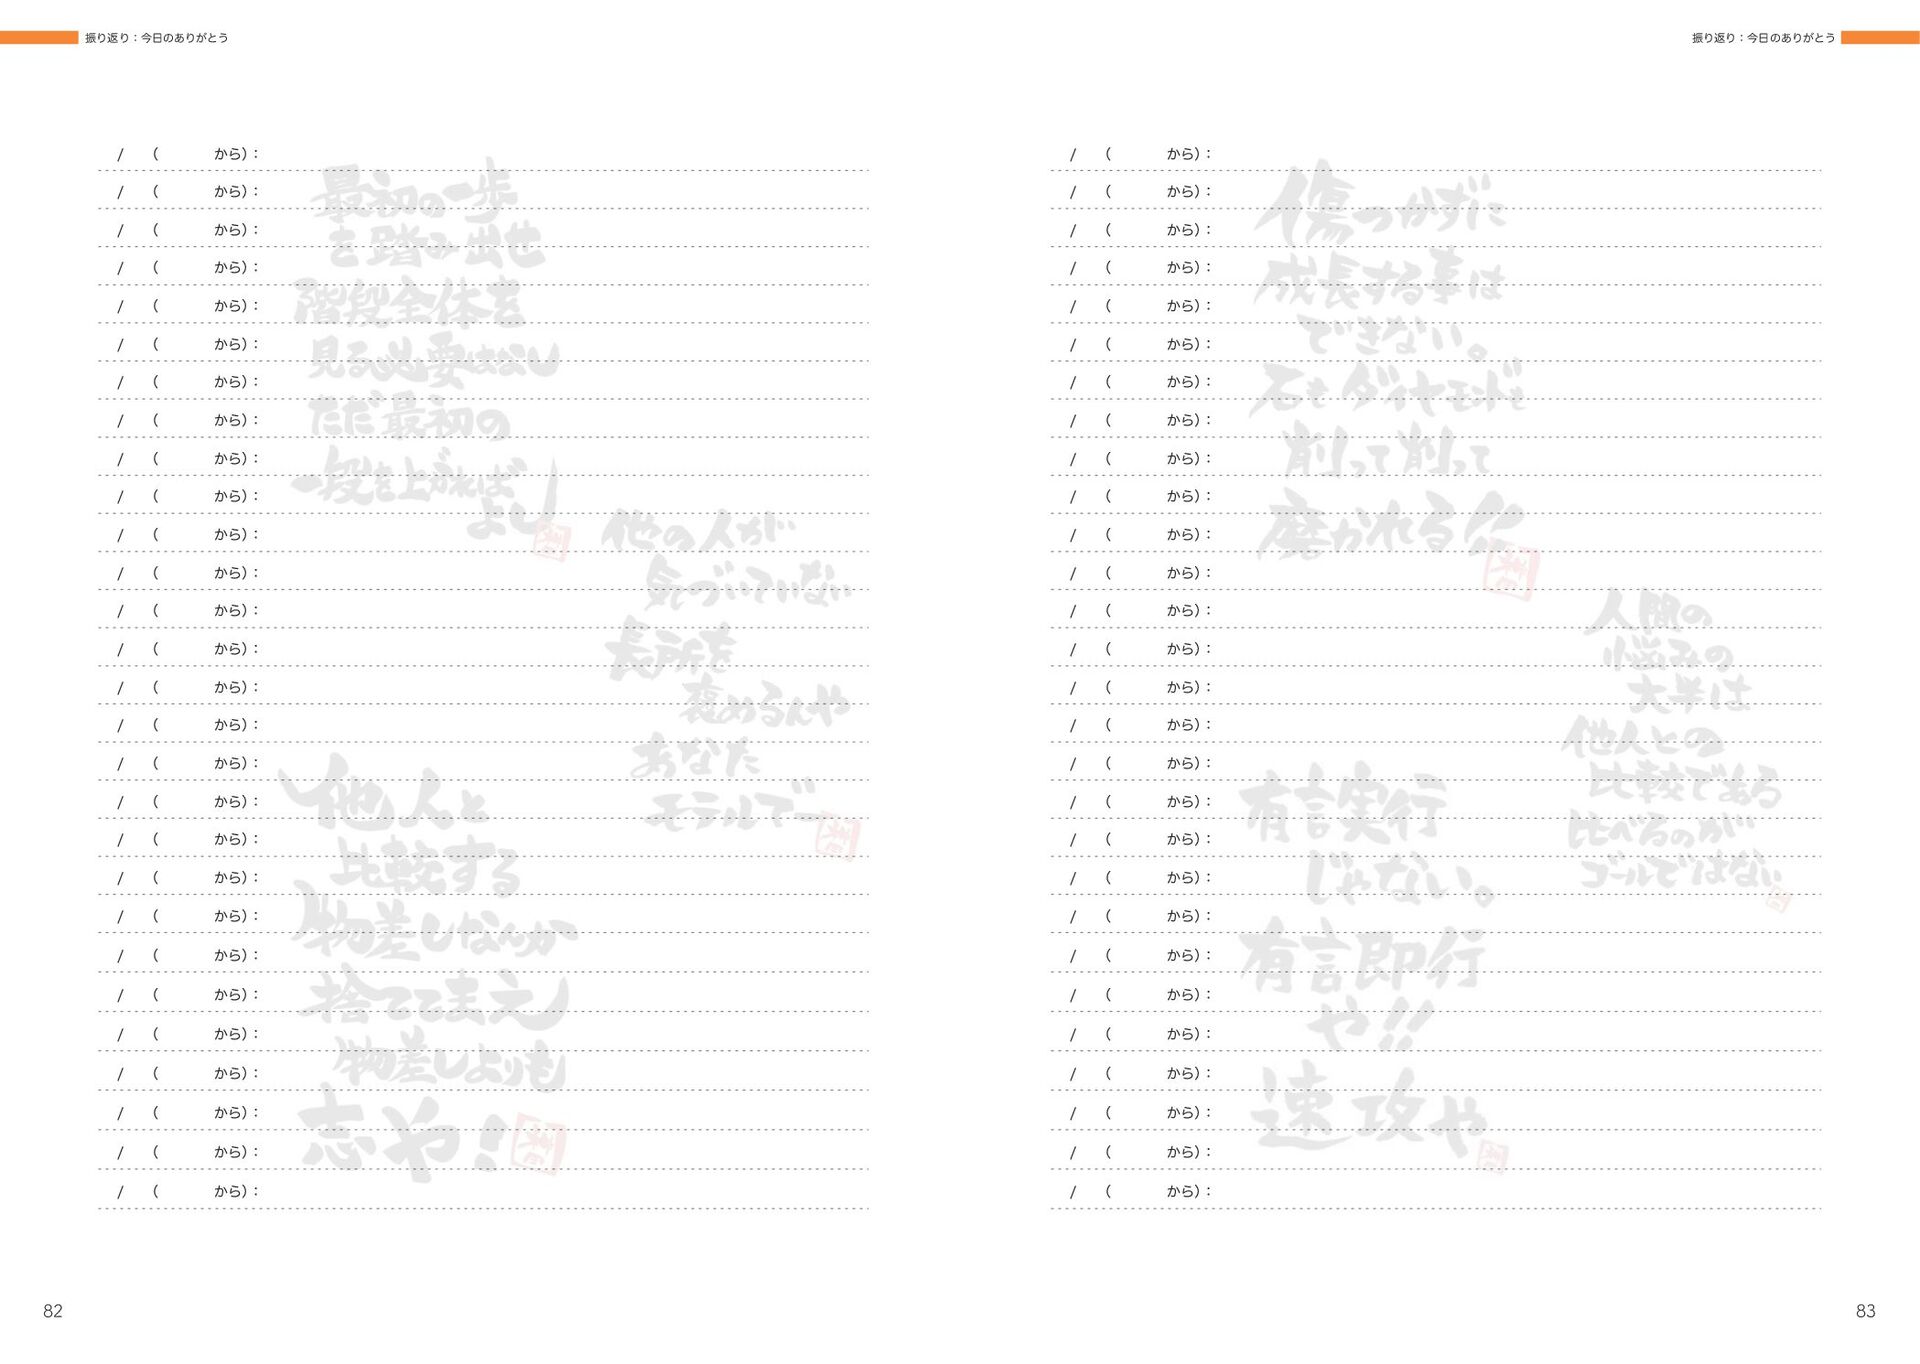 振り返り：今日のありがとう
/ （ から）：
/ （ から）：
/ （ から）：
/ （ から）：
/ （ から）：
/ （ から）：
/ （ から）：
/ （ から）：
/ （ から）：
/ （ から）：
/ （ から）：
/ （ から）：
/ （ から）：
/ （ から）：
/ （ から）：
/ （ から）：
/ （ から）：
/ （ から）：
/ （ から）：
/ （ から）：
/ （ から）：
/ （ から）：
/ （ から）：
/ （ から）：
/ （ から）：
/ （ から）：
/ （ から）：
/ （ から）：
最初の一歩
を踏み出せ
階段全体を
見る必要はない
ただ最初の
一段を上がれば
よい
他の人が
気づいていない
長所を
褒めるんや
あなた
モテルでー
他人と
比較する
物差しなんか
捨ててまえ
物差しよりも
志や！
82
振り返り：今日のありがとう
/ （ から）：
/ （ から）：
/ （ から）：
/ （ から）：
/ （ から）：
/ （ から）：
/ （ から）：
/ （ から）：
/ （ から）：
/ （ から）：
/ （ から）：
/ （ から）：
/ （ から）：
/ （ から）：
/ （ から）：
/ （ から）：
/ （ から）：
/ （ から）：
/ （ から）：
/ （ から）：
/ （ から）：
/ （ から）：
/ （ から）：
/ （ から）：
/ （ から）：
/ （ から）：
/ （ から）：
/ （ から）：
傷つかずに
成長する事は
できない。
石もダイヤモンドも
削って削って
磨かれる!!
人間の
悩みの
大半は
他人との
比較である
比べるのが
ゴールではない
有言実行
じゃない。
有言即行
や!!
速攻や
83